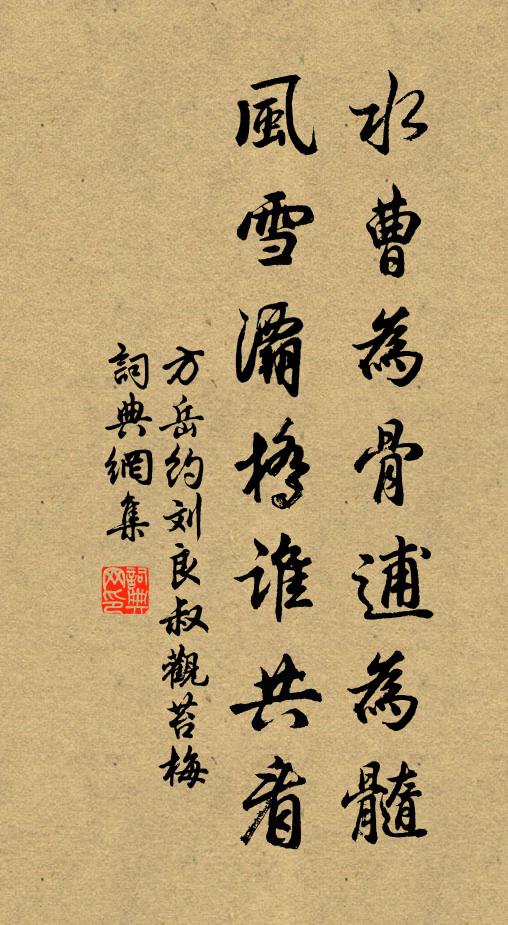 水曹為骨逋為髓
風雪灞橋誰共看
方岳約刘良叔觀苔梅
詞典網集
詞典網印